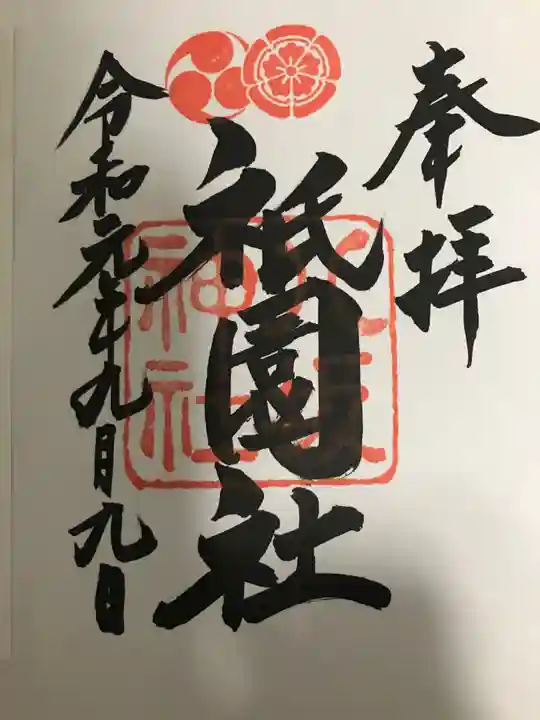 奉拝
祇園社
令和元年九月九日
神社